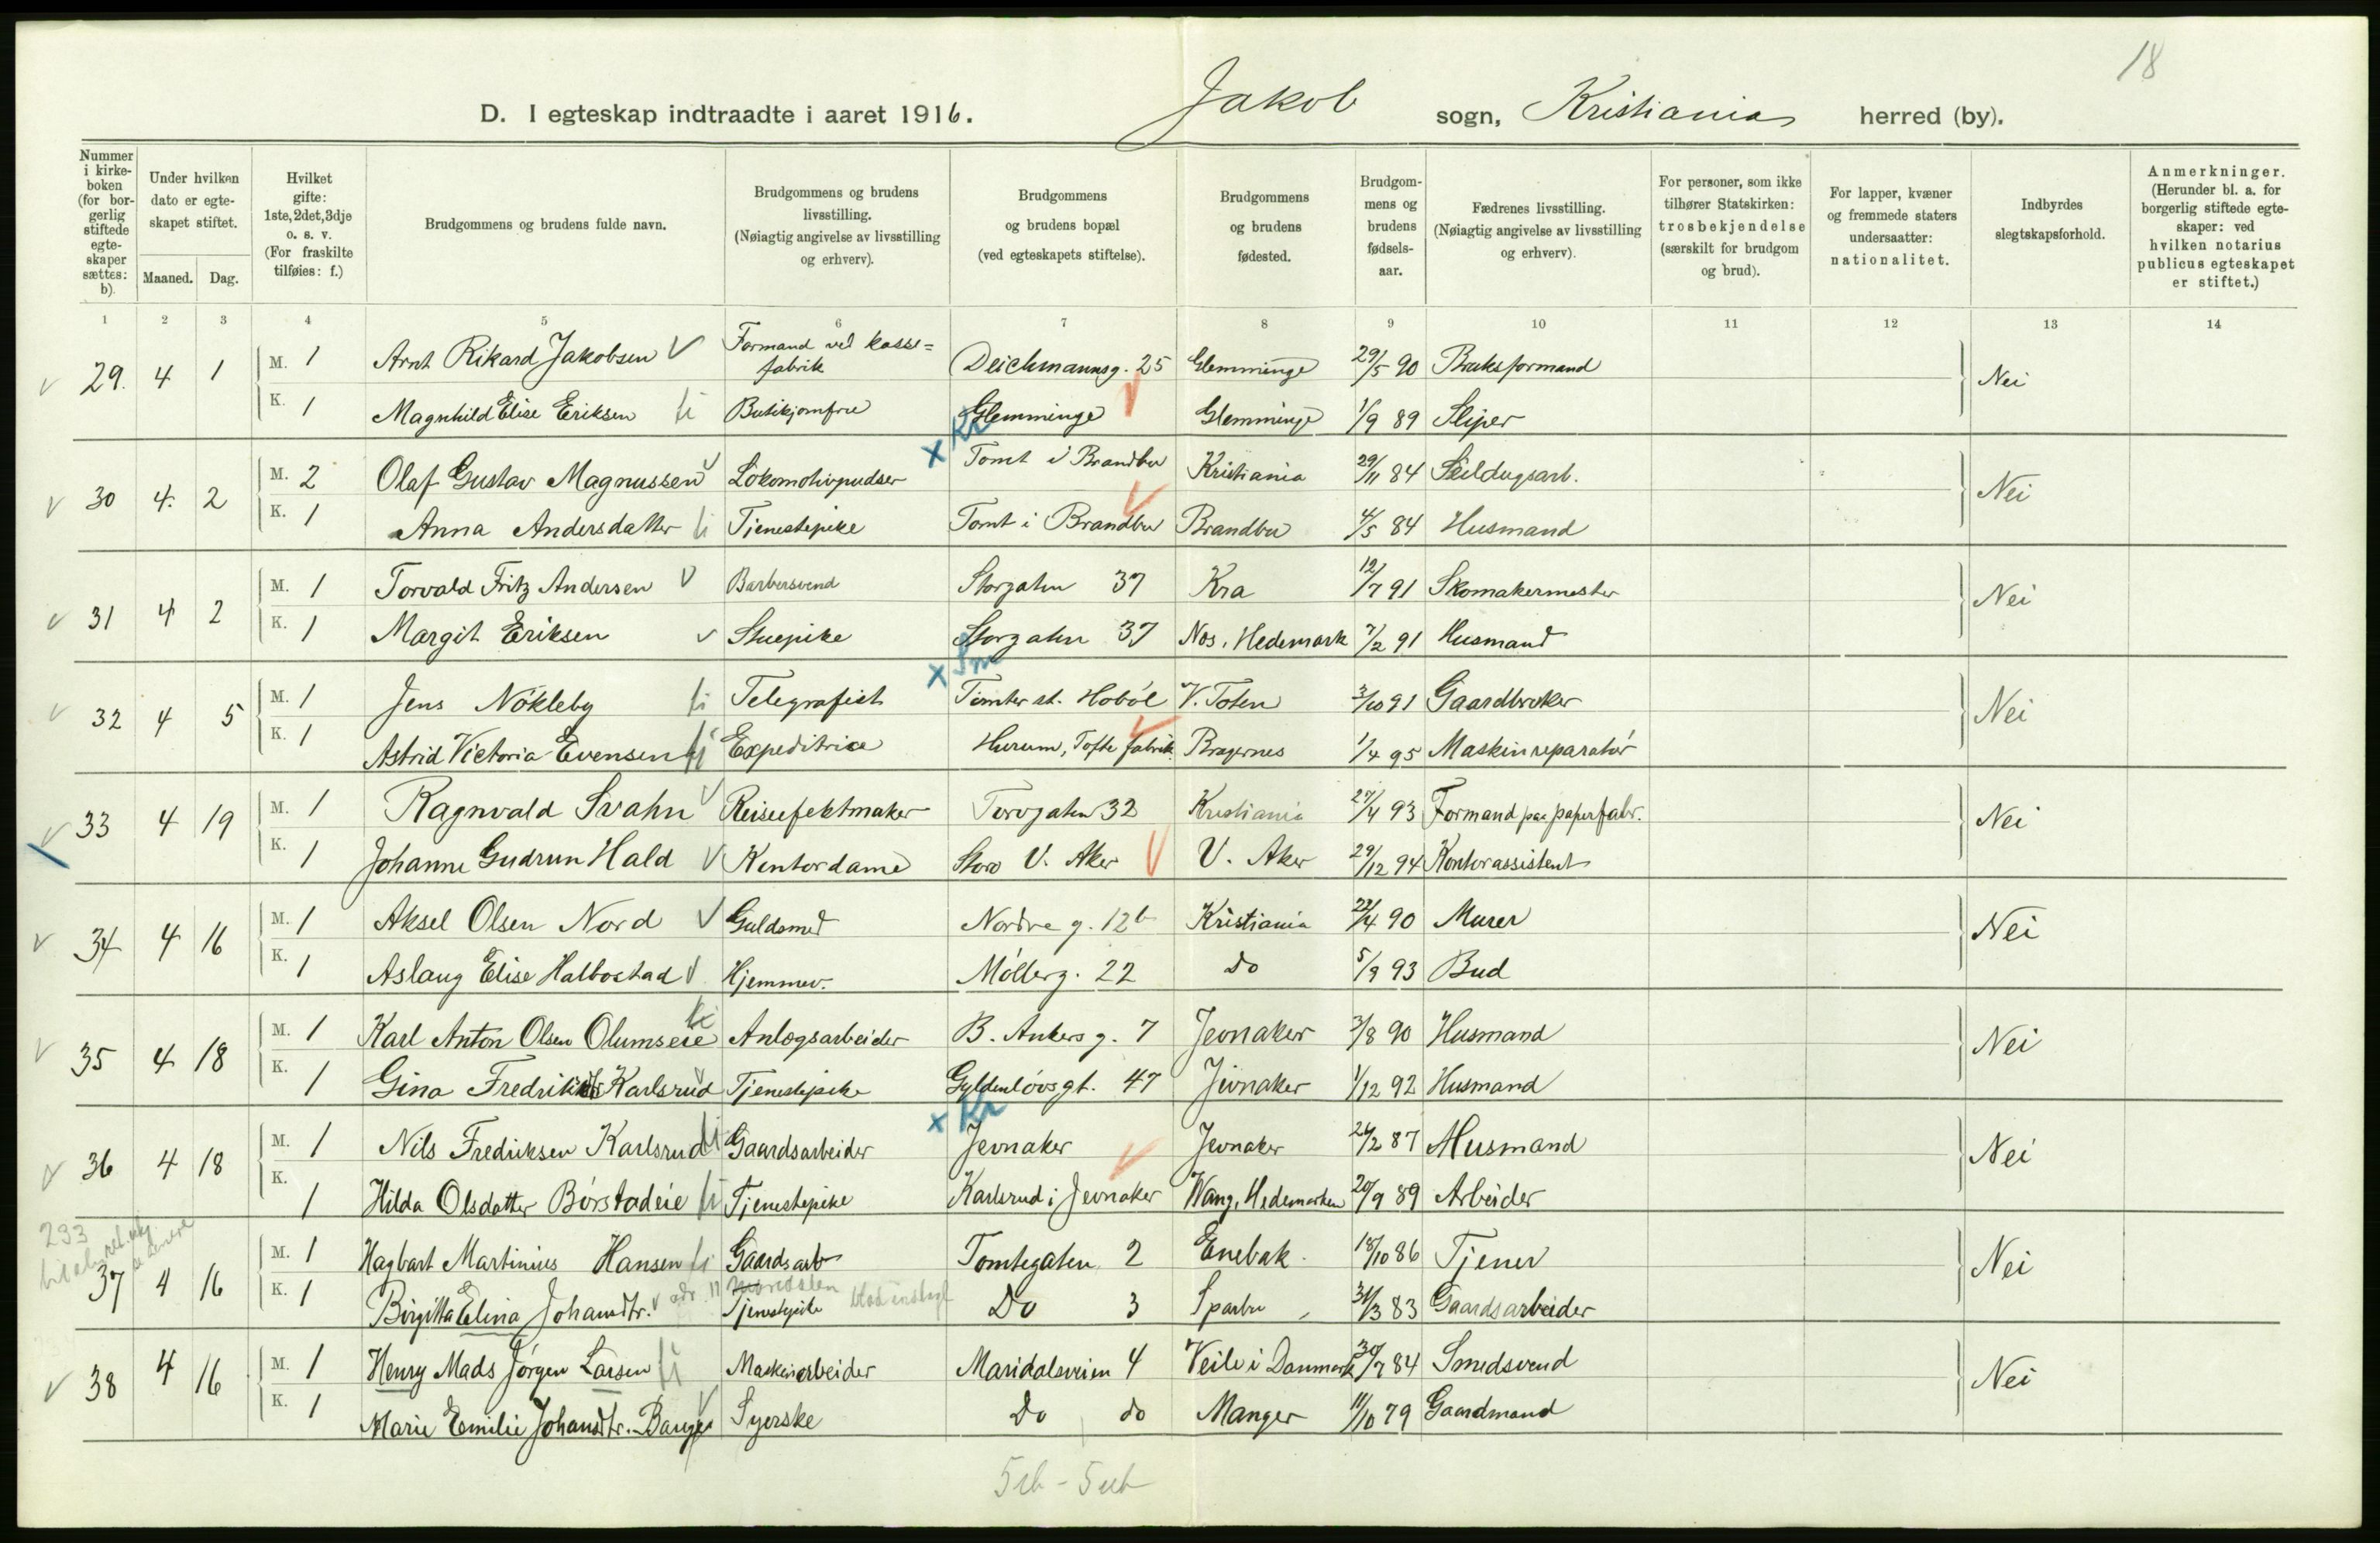 18
D. I egteskap indtraadte i aaret 1916. Jakob sogn, Kristiania herred (by).
Nummer i kirkeboken (for borgerlig stiftede egteskaper sættes: b).
Under hvilken dato er egteskapet stiftet.
Maaned. Dag.
Hvilket gifte: 1ste, 2det, 3dje o. s. v. (For fraskilte tilføies: f.)
Brudgommens og brudens fulde navn.
Brudgommens og brudens livsstilling. (Nøiagtig angivelse av livsstilling og erhverv).
Brudgommens og brudens bopæl (ved egteskapets stiftelse).
Brudgommens og brudens fødested.
Brudgommens og brudens fødselsaar.
Fædrenes livsstilling. (Nøiagtig angivelse av livsstilling og erhverv).
For personer, som ikke tilhører Statskirken: trosbekjendelse (særskilt for brudgom og brud).
For lapper, kvæner og fremmede staters undersaatter: nationalitet.
Indbyrdes slegtskapsforhold.
Anmerkninger. (Herunder bl. a. for borgerlig stiftede egteskaper: ved hvilken notarius publicus egteskapet er stiftet.)
1 2 3 4 5 6 7 8 9 10 11 12 13 14
29. 4 1 M. 1 Arnt Rikard Jakobsen Formand ved kasse=fabrik Deichmannsg. 25 Glemminge 29/5 90 Bruksformand Nei
K. 1 Magnhild Elise Eriksen Butikjomfru Glemminge Glemminge 1/9 89 Sliper
x Kr
30 4. 2 M. 2 Olaf Gustav Magnussen Lokomotivpudser Tomt i Brandbu Kristiania 29/11 84 Seildugsarb. Nei
K. 1 Anna Andersdatter Tjenestepike Tomt i Brandbu Brandbu 4/5 84 Husmand
31 4 2 M. 1 Torvald Fritz Andersen Barbersvend Storgaten 37 Kra 12/7 91 Skomakermester Nei
K. 1 Margit Eriksen Stuepike Storgaten 37 Nes, Hedemark 7/2 91 Husmand
x Sm
32 4 5 M. 1 Jens Nökleby Telegrafist Tomter st. Hoböl V. Toten 3/10 91 Gaardbruker Nei
K. 1 Astrid Victoria Evensen Expeditrice Hurum, Tofte fabrik Bragernes 1/4 95 Maskinreparatör
33 4 19 M. 1 Ragnvald Svahn Reiseefektmaker Torvgaten 32 Kristiania 27/4 93 Formand paa papirfabr. Nei
K. 1 Johanne Gudrun Hald Kontordame Storo V. Aker V. Aker 29/12 94 Kontorassistent
34 4 16 M. 1 Aksel Olsen Nord Guldsmed Nordre g. 12b Kristiania 22/4 90 Murer Nei
K. 1 Aslaug Elise Halbostad Hjemmev. Möllerg. 22 do 5/9 93 Bud
35 4 18 M. 1 Karl Anton Olsen Olumseie Anlægsarbeider B. Ankers g. 7 Jevnaker 3/8 90 Husmand Nei
K. 1 Gina Fredriksdtr Karlsrud Tjenestepike Gyldenlövsgt. 47 Jevnaker 1/12 92 Husmand
x Kr
36 4 18 M. 1 Nils Fredriksen Karlsrud Gaardsarbeider Jevnaker Jevnaker 24/2 87 Husmand Nei
K. 1 Hilda Olsdatter Börstadeie Tjenestepike Karlsrud i Jevnaker Wang, Hedemarken 20/9 89 Arbeider
233
37 4 16 M. 1 Hagbart Martinius Hansen Gaardsarb Tomtegaten 2 Enebak. 18/10 86 Tjener Nei
K. 1 Birgitta Elina Johansdtr. Tjenestepike Do 3 Sparbu 31/3 83 Gaardsarbeider
38 4 16 M. 1 Henry Mads Jörgen Larsen Maskinarbeider Maridalsveien 4 Veile i Danmark 30/7 84 Smedsvend Nei
K. 1 Marie Emilie Johansdtr. Bauge Syerske Do do Manger 11/10 79 Gaardmand